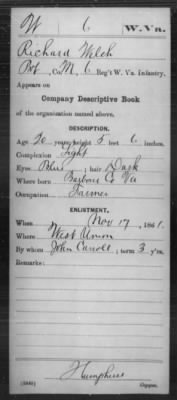 W 6 W.Va.
Richard Welch
Pvt, Co. M, 6 Reg't W. Va. Infantry.
Appears on
Company Descriptive Book
of the organization named above.
DESCRIPTION.
Age 20 years; height 5 feet 6 inches.
Complexion Light
Eyes Blue; hair Dark
Where born Barbour Co Va
Occupation Farmer
ENLISTMENT.
When Nov 17, 1861.
Where West Union
By whom John Carroll; term 3 y'rs.
Remarks:
Humphries
Copyist.